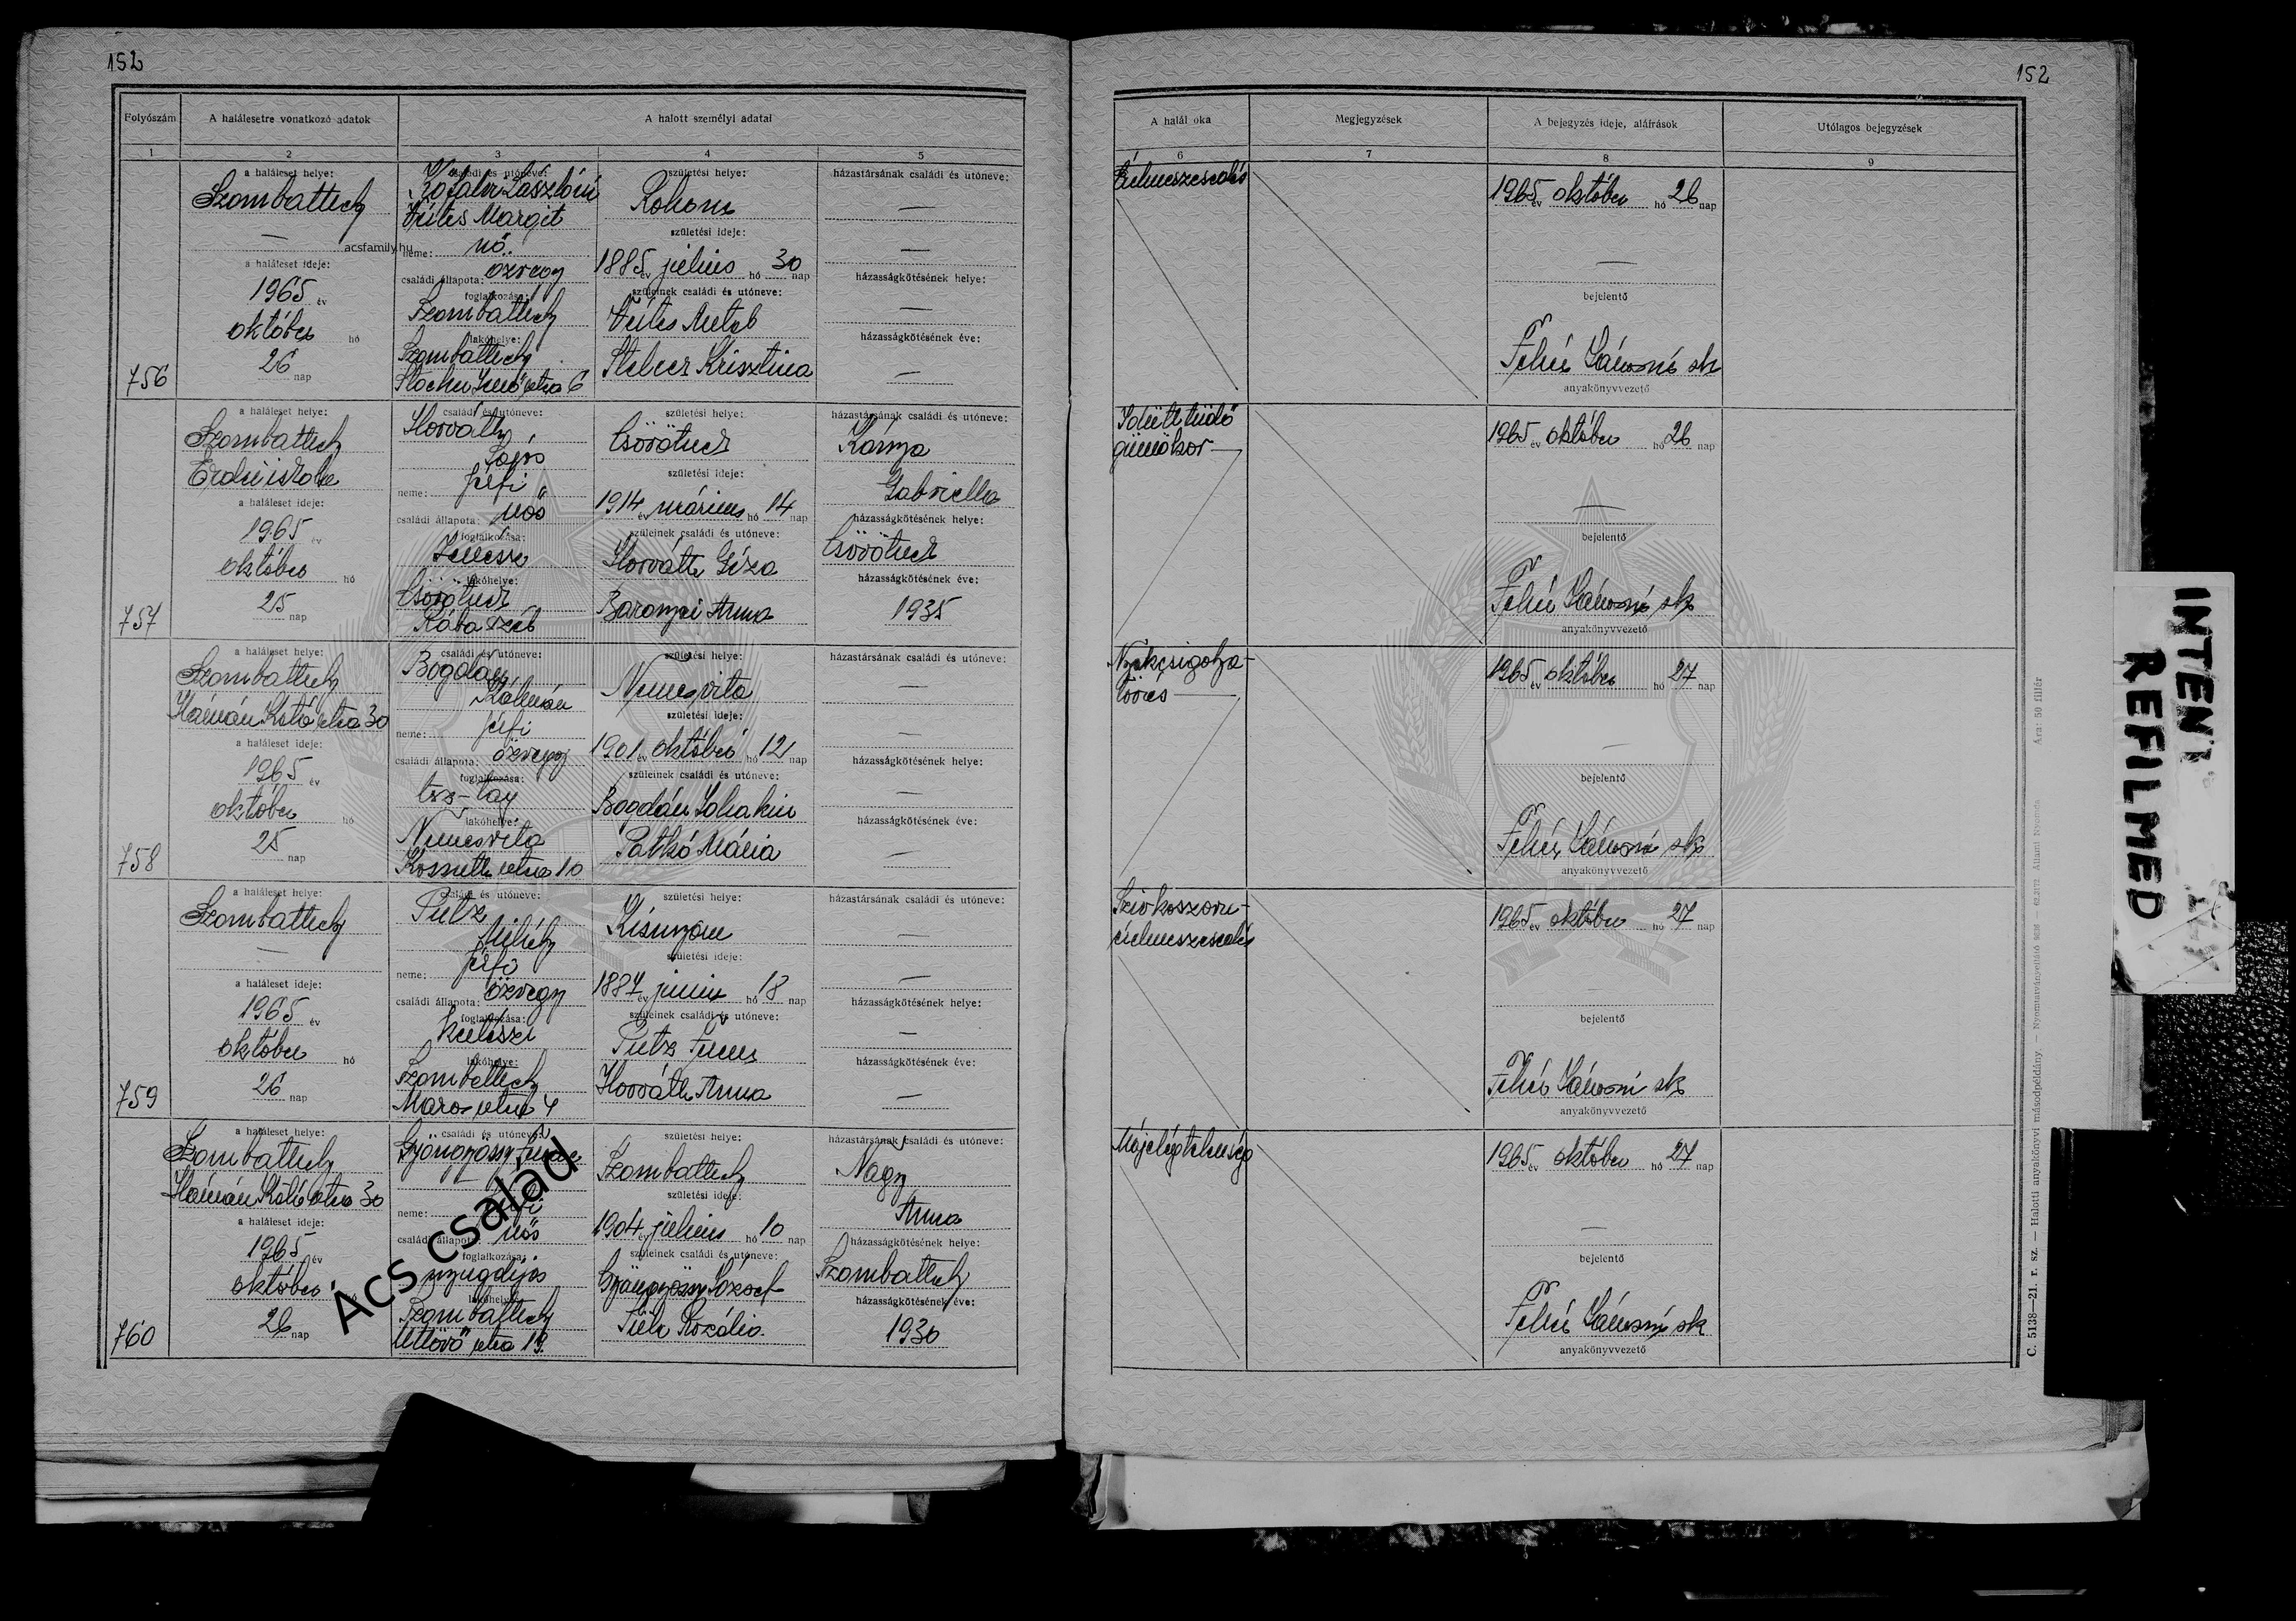 152
152
Folyószám
A halálesetre vonatkozó adatok
A halott személyi adatai
A halál oka
Megjegyzések
A bejegyzés ideje, aláírások
Utólagos bejegyzések
1
2
3
4
5
6
7
8
9
756
a haláleset helye:
Szombathely
—
a haláleset ideje:
1965 év
október hó
26 nap
családi és utóneve:
Lászlóné
Margit
acsfamily.hu
neme: nő
családi állapota: özvegy
foglalkozása:
Szombathely
lakóhelye:
Szombathely
utca 6
születési helye:
születési ideje:
1885 év július hó 30 nap
szüleinek családi és utóneve:
Krisztina
házastársának családi és utóneve:
—
—
házasságkötésének helye:
—
házasságkötésének éve:
—
Érelmeszesedés
1965 év október hó 26 nap
—
bejelentő
Fehér Jánosné sk
anyakönyvvezető
757
a haláleset helye:
Szombathely
Erdei iskola
a haláleset ideje:
1965 év
október hó
25 nap
családi és utóneve:
Horváth
Lajos
neme: férfi
családi állapota: nős
foglalkozása:
Zenész
lakóhelye:
Csörötnek
születési helye:
Csörötnek
születési ideje:
1914 év március hó 14 nap
szüleinek családi és utóneve:
Horváth Géza
Baranyai Anna
házastársának családi és utóneve:
Kánya
Gabriella
házasságkötésének helye:
Csörötnek
házasságkötésének éve:
1935
Idült tüdő
gümőkór —
1965 év október hó 26 nap
—
bejelentő
Fehér Jánosné sk
anyakönyvvezető
758
a haláleset helye:
Szombathely
Hámán Kató utca 30
a haláleset ideje:
1965 év
október hó
25 nap
családi és utóneve:
Bogdán
Kálmán
neme: férfi
családi állapota: özvegy
foglalkozása:
tsz-tag
lakóhelye:
Nemesvita
Kossuth utca 10
születési helye:
Nemesvita
születési ideje:
1901 év október hó 12 nap
szüleinek családi és utóneve:
Bogdán
Patkó Mária
házastársának családi és utóneve:
—
—
házasságkötésének helye:
—
házasságkötésének éve:
—
Nyakcsigolya-
törés —
1965 év október hó 27 nap
—
bejelentő
Fehér Jánosné sk
anyakönyvvezető
759
a haláleset helye:
Szombathely
—
a haláleset ideje:
1965 év
október hó
26 nap
családi és utóneve:
Putz
Mihály
neme: férfi
családi állapota: özvegy
foglalkozása:
lakóhelye:
Szombathely
Maros utca 4
születési helye:
Kisunyom
születési ideje:
1887 év június hó 18 nap
szüleinek családi és utóneve:
Putz Ferenc
Horváth Anna
házastársának családi és utóneve:
—
—
házasságkötésének helye:
—
házasságkötésének éve:
—
Szívkoszorú-
érelmeszesedés
1965 év október hó 27 nap
bejelentő
Fehér Jánosné sk
anyakönyvvezető
760
a haláleset helye:
Szombathely
Hámán Kató utca 30
a haláleset ideje:
1965 év
október hó
26 nap
családi és utóneve:
Gyöngyössy
neme: férfi
családi állapota: nős
foglalkozása:
nyugdíjas
lakóhelye:
Szombathely
Úttörő utca 19.
születési helye:
Szombathely
születési ideje:
1904 év július hó 10 nap
szüleinek családi és utóneve:
Gyöngyössy József
Rozália.
házastársának családi és utóneve:
Nagy
Anna
házasságkötésének helye:
Szombathely
házasságkötésének éve:
1930
Májelégtelenség
1965 év október hó 27 nap
—
bejelentő
Fehér Jánosné sk
anyakönyvvezető
Ács család
C. 5138—21. r. sz. — Halotti anyakönyvi másodpéldány. — Nyomtatványellátó Állami Nyomda Ára: 50 fillér
REFILMED